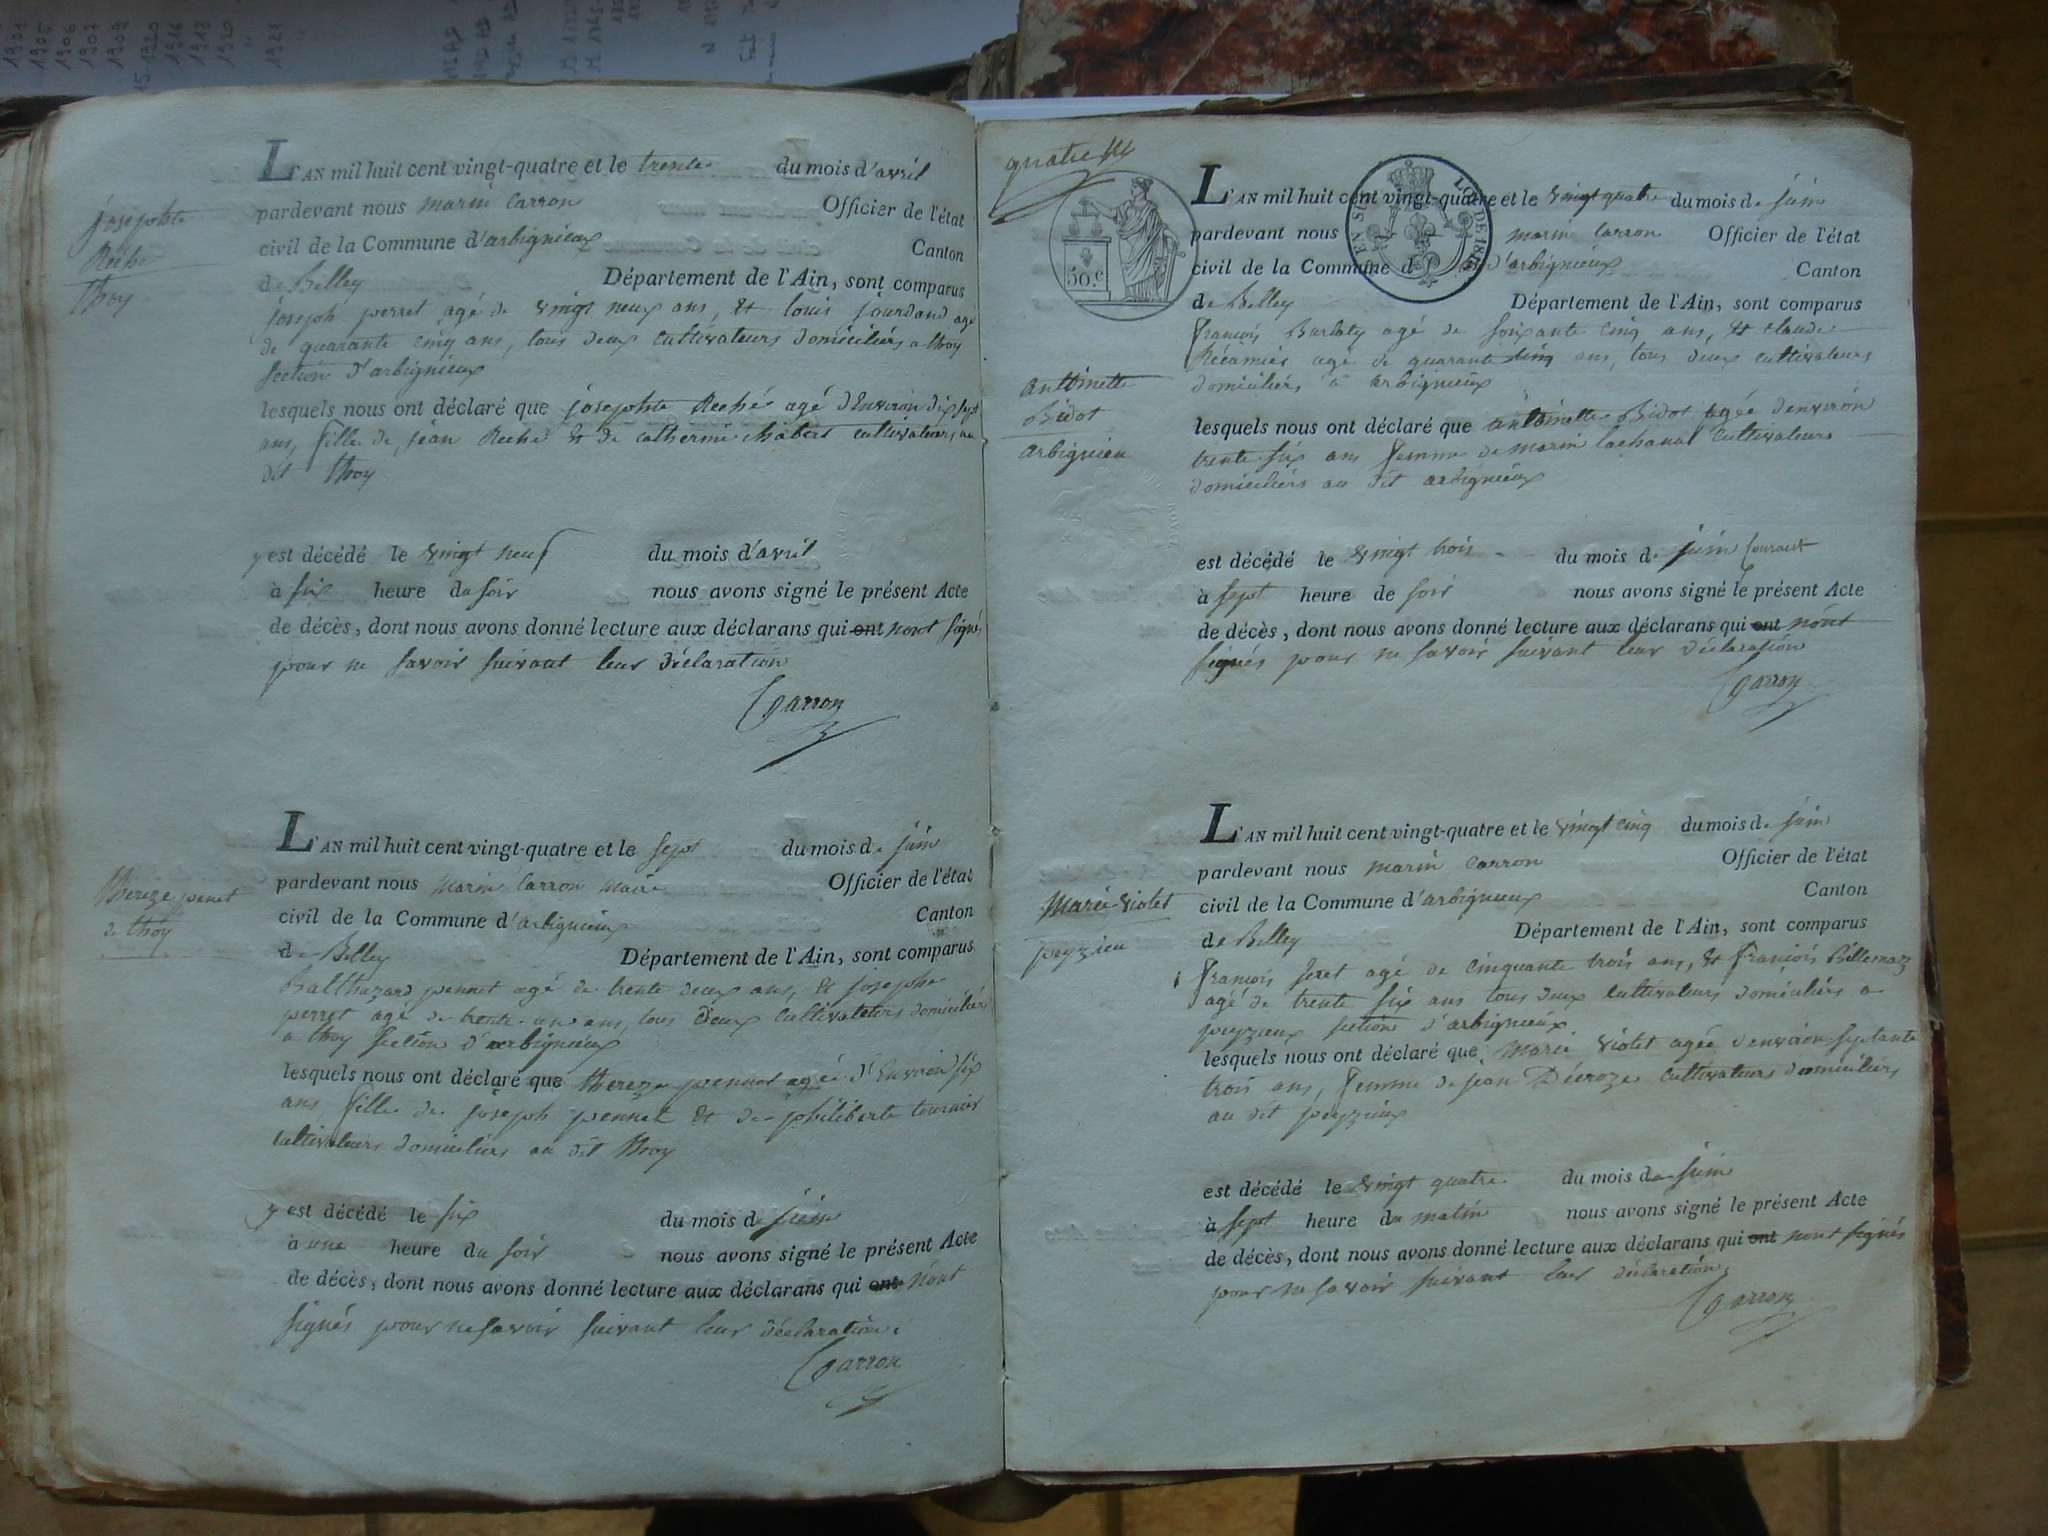 josephte
Reché
thoy
L'AN mil huit cent vingt-quatre et le trente du mois d'avril
pardevant nous marin Carron Officier de l'état
civil de la Commune d'arbignieux Canton
de Belley Département de l'Ain, sont comparus
joseph perret agé de vingt neuf ans, et louis jourdand agé
de quarante cinq ans, tous deux cultivateurs domiciliés a thoy
section d'arbignieux
lesquels nous ont déclaré que josephte Reché agé d'Environ dix sept
ans, fille de jean Reché et de catherine chabert cultivateurs au
dit thoy
y est décédé le vingt neuf du mois d'avril
à six heure du soir nous avons signé le présent Acte
de décès, dont nous avons donné lecture aux déclarans qui ont nont signés
pour ne savoir suivant leur déclaration
Carron
thereze penet
de thoy
L'AN mil huit cent vingt-quatre et le sept du mois de juin
pardevant nous Marin Carron maire Officier de l'état
civil de la Commune d'arbignieux Canton
de Belley Département de l'Ain, sont comparus
Balthazard pennet agé de trente deux ans, et josephe
perret agé de trente un ans, tous deux cultivateurs domiciliés
a thoy section d'arbignieux
lesquels nous ont déclaré que thereze pennet agée d'Environ six
ans fille de joseph pennet et de philiberte tournier
cultivateurs domiciliers au dit thoy
y est décédé le six du mois de juin
à une heure du soir nous avons signé le présent Acte
de décès, dont nous avons donné lecture aux déclarans qui ont nont
signés pour ne savoir suivant leur déclaration.
Carron
quatre
50.c
LOI DE 1816
antoinette
Bidot
arbignieu
L'AN mil huit cent vingt-quatre et le vingt quatre du mois de juin
pardevant nous marin Carron Officier de l'état
civil de la Commune d'arbignieux Canton
de Belley Département de l'Ain, sont comparus
françois Burlaty agé de soixante cinq ans, et claude
Récamier agé de quarante cinq ans, tous deux cultivateurs
domiciliés a arbignieux
lesquels nous ont déclaré que antoinette Bidot agée d'environ
trente six ans femme de marin lachanal cultivateurs
domiciliés au dit arbignieux
est décédé le vingt trois du mois de juin courant
à sept heure de soir nous avons signé le présent Acte
de décès, dont nous avons donné lecture aux déclarans qui ont nont
signés pour ne savoir suivant leur déclaration
Carron
Marie violet
peyzieu
L'AN mil huit cent vingt-quatre et le vingt cinq du mois de juin
pardevant nous marin carron Officier de l'état
civil de la Commune d'arbignieux Canton
de Belley Département de l'Ain, sont comparus
françois feret agé de cinquante trois ans, et françois Billemaz
agé de trente six ans tous deux cultivateurs domiciliés a
peyzieux section d'arbignieux
lesquels nous ont déclaré que Marie violet agée d'environ septante
trois ans, femme de jean Décroze cultivateurs domiciliers
au dit peyzieux
est décédé le vingt quatre du mois de juin
à sept heure du matin nous avons signé le présent Acte
de décès, dont nous avons donné lecture aux déclarans qui ont nont signés
pour ne savoir suivant leur déclaration.
Carron